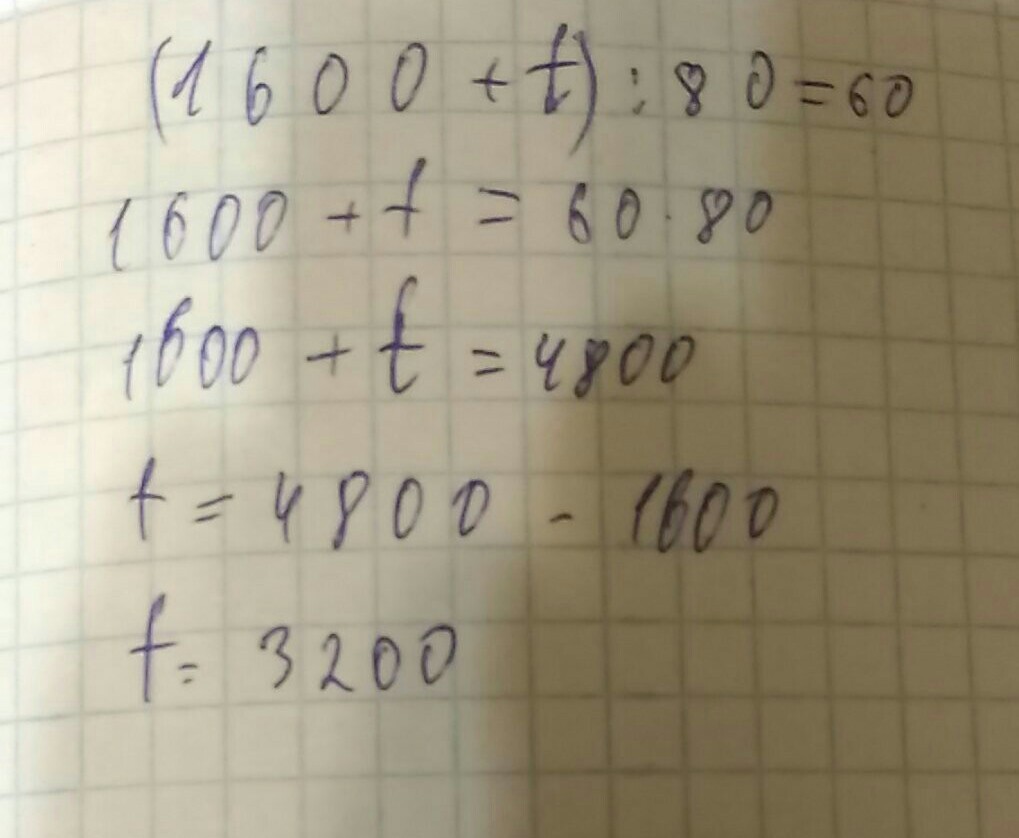 (1600 + t) : 80 = 60
1600 + t = 60 · 80
1600 + t = 4800
t = 4800 - 1600
t = 3200